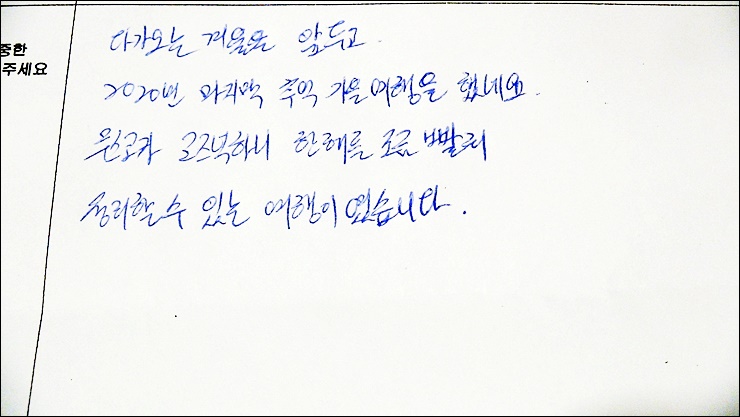 중한
주세요
다가오는 겨울을 앞두고
2020년 마지막 추억 가을여행을 했네요.
고즈넉하니 한해를 조금 빨리
정리할 수 있는 여행이였습니다.